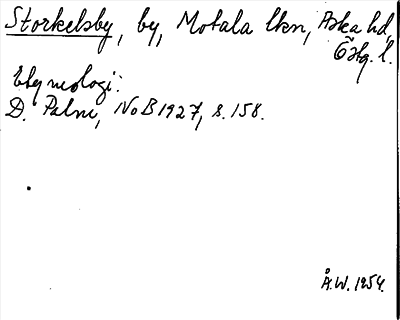 Storkelsby, by, Motala lkn, Aska hd,
Östg. l.
Etymologi:
D. Palm, NoB 1927, s. 158.
Å.W. 1954.